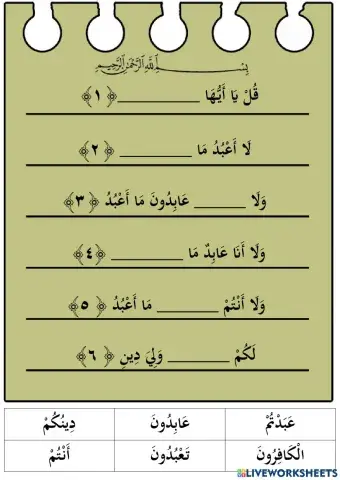 بِسْمِ اللَّهِ الرَّحْمَٰنِ الرَّحِيمِ
قُلْ يَا أَيُّهَا __________ ﴿١﴾
لَا أَعْبُدُ مَا _________ ﴿٢﴾
وَلَا ______ عَابِدُونَ مَا أَعْبُدُ ﴿٣﴾
وَلَا أَنَا عَابِدٌ مَا _________ ﴿٤﴾
وَلَا أَنْتُمْ _______ مَا أَعْبُدُ ﴿٥﴾
لَكُمْ _______ وَلِيَ دِينِ ﴿٦﴾
عَبَدْتُمْ عَابِدُونَ دِينُكُمْ
الْكَافِرُونَ تَعْبُدُونَ أَنْتُمْ
LIVEWORKSHEETS